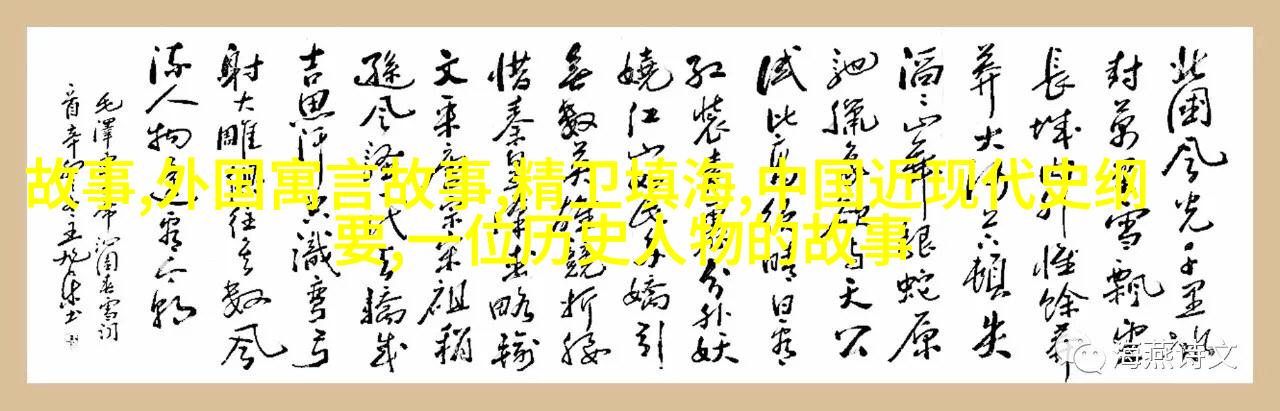 故事,外国寓言故事,精卫填海,中国近现代史纲
要,一位历史人物的故事
北國风光千里冰
封萬里雪飄望
長城内外惟餘莽
莽大河上下頓失
滔滔山舞银蛇原
馳臘象欲与天公
試比高须晴日看
红裝素裹分外妖
嬈江山如此多嬌引
無數英雄競折腰
惜秦皇漢武略輸
文采唐宗宋祖稍
遜风骚一代天驕成
吉思汗只識彎弓
射大雕俱往矣數风
流人物还看今朝
毛澤東 沁園春雪詞
海燕诗文